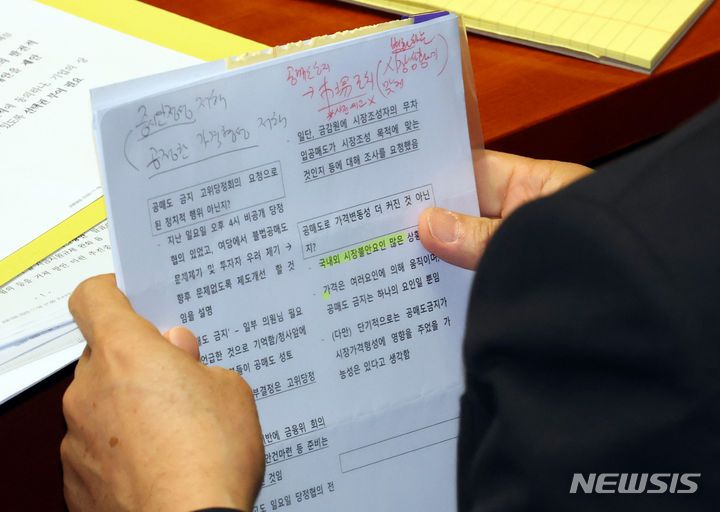 증시안정 저해
공정한 가격형성 저해
공매도 금지 고위당정회의 요청으로
된 정치적 행위 아닌지?
· 지난 일요일 오후 4시 비공개 당정
협의 있었고, 여당에서 불법공매도
문제제기 및 투자자 우려 제기 →
향후 문제없도록 제도개선 할 것
임을 설명
매도 금지' - 일부 의원님 필요
언급한 것으로 기억함/청사앞에
들이 공매도 성토
부결정은 고위당정
반에 금융위 회의
안건마련 등 준비는
것임
도 일요일 당정협의 전
공매도금지
→ 市場조치
시장상황에
맞게
· 일단, 금감원에 시장조성자의 무차
입공매도가 시장조성 목적에 맞는
것인지 등에 대해 조사를 요청했음
공매도로 가격변동성 더 커진 것 아닌
지?
· 국내외 시장불안요인 많은 상황
· 가격은 여러요인에 의해 움직이며,
공매도 금지는 하나의 요인일 뿐임
· (다만) 단기적으로는 공매도금지가
시장가격형성에 영향을 주었을 가
능성은 있다고 생각함
NEWSIS